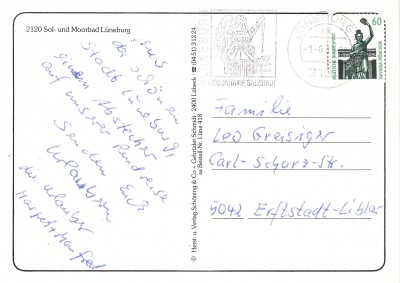 2120 Sol- und Moorbad Lüneburg
Aus
der schönen
Stadt Lüneburg,
einem Abstecher
auf unserer Rundreise
senden Euch
die Urlauber
© Herst. u. Verlag Schöning & Co + Gebrüder Schmidt, 2400 Lübeck
☎ (04 51) 3 12 24
Bestell-Nr. Lüne 418
60
DEUTSCHE BUNDESPOST
Familie
Leo Greisiger
Carl-Schurz-Str.
5042 Erftstadt-Liblar